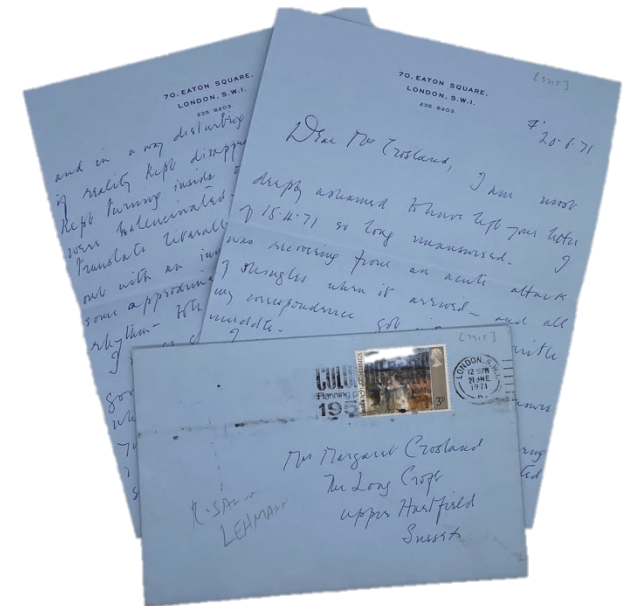 70, EATON SQUARE,
LONDON, S.W.1.
235 6203.
and in a way disturbing
of reality kept disapp
kept turning inside
were hallucinated-
Translate literall
out with an in
some approxim
rhythm-
I
70, EATON SQUARE,
LONDON, S.W.1.
235 6203.
[3315]
20-6-71
Dear Mrs Crosland, I am most
deeply ashamed to have left your letter
of 15-4-71 so long unanswered. I
was recovering from an acute attack
of shingles when it arrived- and all
my correspondence got
muddle-
[3315]
Planning
195
3P
LONDON, S.W.1
12 30PM
21 JNE
1971
Mrs Margaret Crosland
The Long Croft
Upper Hartfield
Sussex
ROSAMOND
LEHMANN